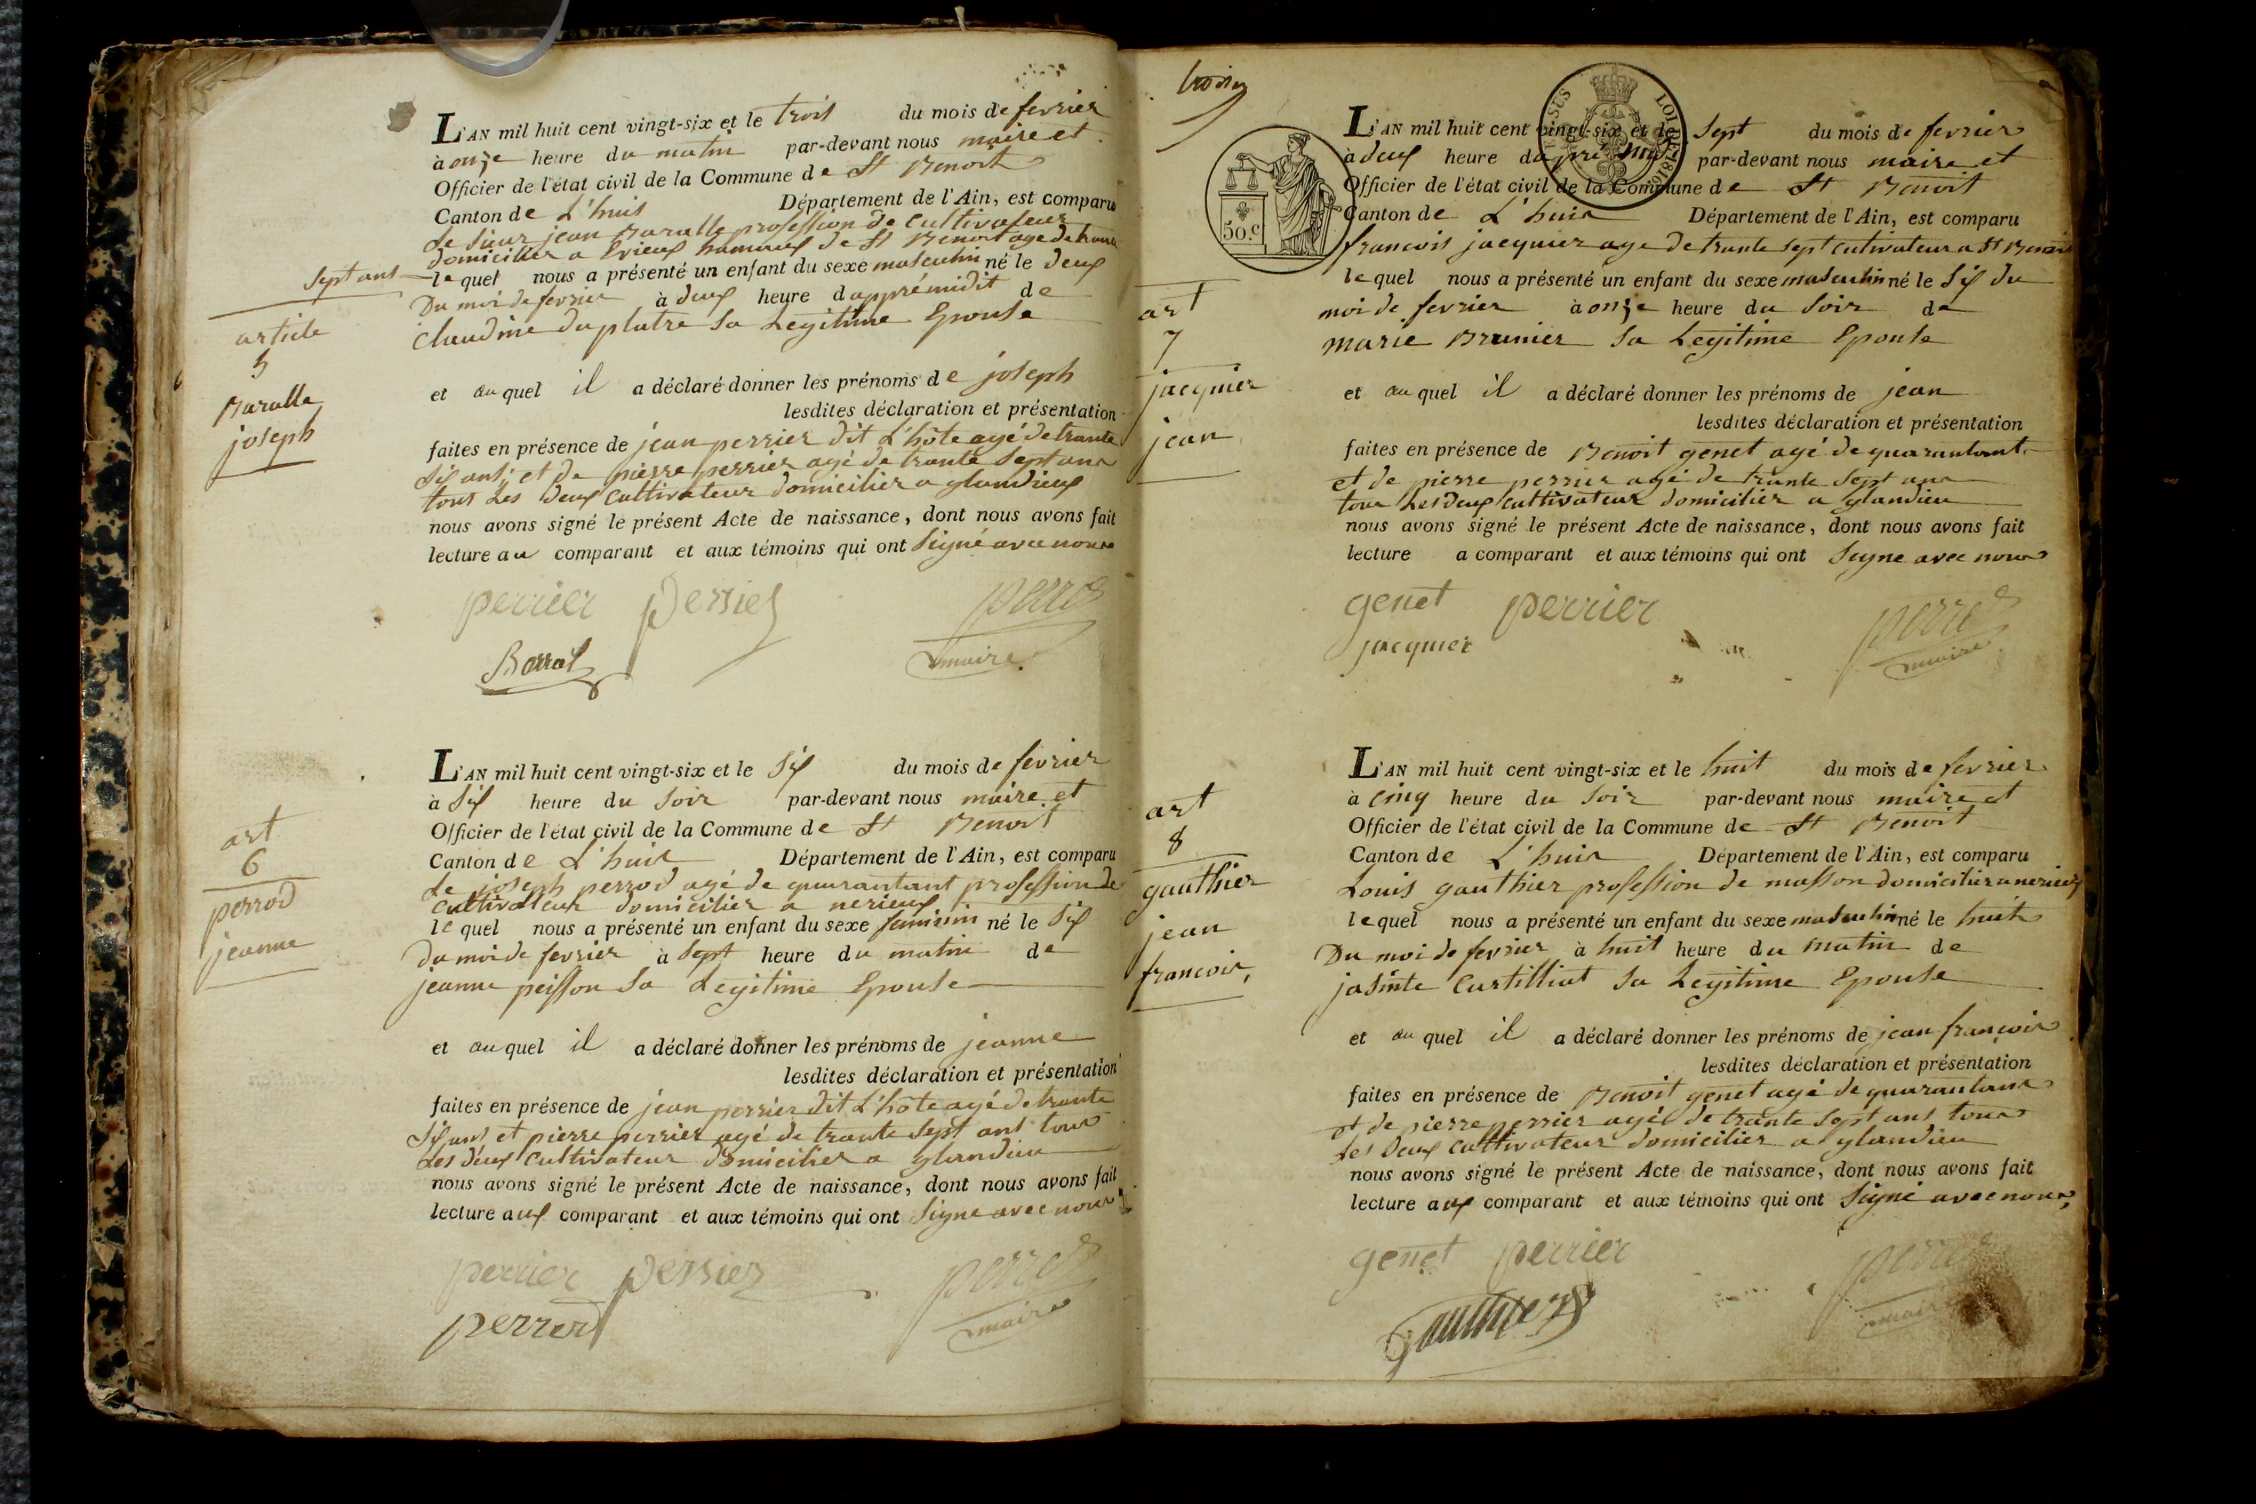 L'AN mil huit cent vingt-six et le trois du mois de fevrier
à onze heure du matin par-devant nous maire et
Officier de l'état civil de la Commune de St Benoit
Canton de L'huis Département de l'Ain, est comparu
le sieur jean Baralle profession de cultivateur
domicilier a hameux de St Benoit age de trante
sept ans
le quel nous a présenté un enfant du sexe masculin né le deux
Du moi de fevrier à deux heure d'apprémidit de
Claudine Duplatre Sa Legitime Epouse
et au quel il a déclaré donner les prénoms de joseph
lesdites déclaration et présentation
faites en présence de jean perrier dit L'hôte agé de trante
Six ans, et de pierre perrier agé de trante Sept ans
tous Les Deux Cultivateur domicilier a glandieux
nous avons signé le présent Acte de naissance, dont nous avons fait
lecture au comparant et aux témoins qui ont Signé avec nous
perrier perrier perrod
Barral maire
article
5
Baralle
joseph
L'AN mil huit cent vingt-six et le Six du mois de fevrier
à Six heure du Soir par-devant nous maire et
Officier de l'état civil de la Commune de St Benoit
Canton de L'huis Département de l'Ain, est comparu
Le joseph perrod agé de quarantant profession de
Cultivateur domicilier a nerieux
le quel nous a présenté un enfant du sexe feminin né le Six
Du moi de fevrier à Sept heure du matin de
jeanne peisson Sa Legitime Epouse
et au quel il a déclaré donner les prénoms de jeanne
lesdites déclaration et présentation
faites en présence de jean perrier dit L'hôte agé de trante
Six ans et pierre perrier agé de trante Sept ans tous
Les deux Cultivateur domicilier a glandieu
nous avons signé le présent Acte de naissance, dont nous avons fait
lecture aux comparant et aux témoins qui ont Signe avec nous
perrier perrier perrod
perrod maire
art
6
perrod
jeanne
50.c
LOI DE 1816
L'AN mil huit cent vingt-six et le Sept du mois de fevrier
à deux heure d'apre midi par-devant nous maire et
Officier de l'état civil de la Commune de St Benoit
Canton de L'huis Département de l'Ain, est comparu
francois jacquier age de trante Sept Cutivateur a St Benoit
le quel nous a présenté un enfant du sexe masculin né le Six du
moi de fevrier à onze heure du Soir de
marie Brunier Sa Legitime Epouse
et au quel il a déclaré donner les prénoms de jean
lesdites déclaration et présentation
faites en présence de Benoit genet agé de quarantant
et de pierre perrier agé de trante Sept ans
tous Les Deux Cultivateur domicilier a glandieu
nous avons signé le présent Acte de naissance, dont nous avons fait
lecture a comparant et aux témoins qui ont Signe avec nous
genet perrier perrod
jacquier maire
art
7
jacquier
jean
L'AN mil huit cent vingt-six et le huit du mois de fevrier
à Cinq heure du Soir par-devant nous maire et
Officier de l'état civil de la Commune de St Benoit
Canton de L'huis Département de l'Ain, est comparu
Louis gauthier profession de masson domicilier a nerieux
le quel nous a présenté un enfant du sexe masculin né le huit
Du moi de fevrier à huit heure du matin de
jasinte Castilliat Sa Legitime Epouse
et au quel il a déclaré donner les prénoms de jean françois
lesdites déclaration et présentation
faites en présence de Benoit genet agé de quarantans
et de pierre perrier agé de trante Sept ans tous
Les Deux Cultivateur domicilier a glandieu
nous avons signé le présent Acte de naissance, dont nous avons fait
lecture aux comparant et aux témoins qui ont Signé avec nous
genet perrier perrod
gauthier maire
art
8
gauthier
jean
francois